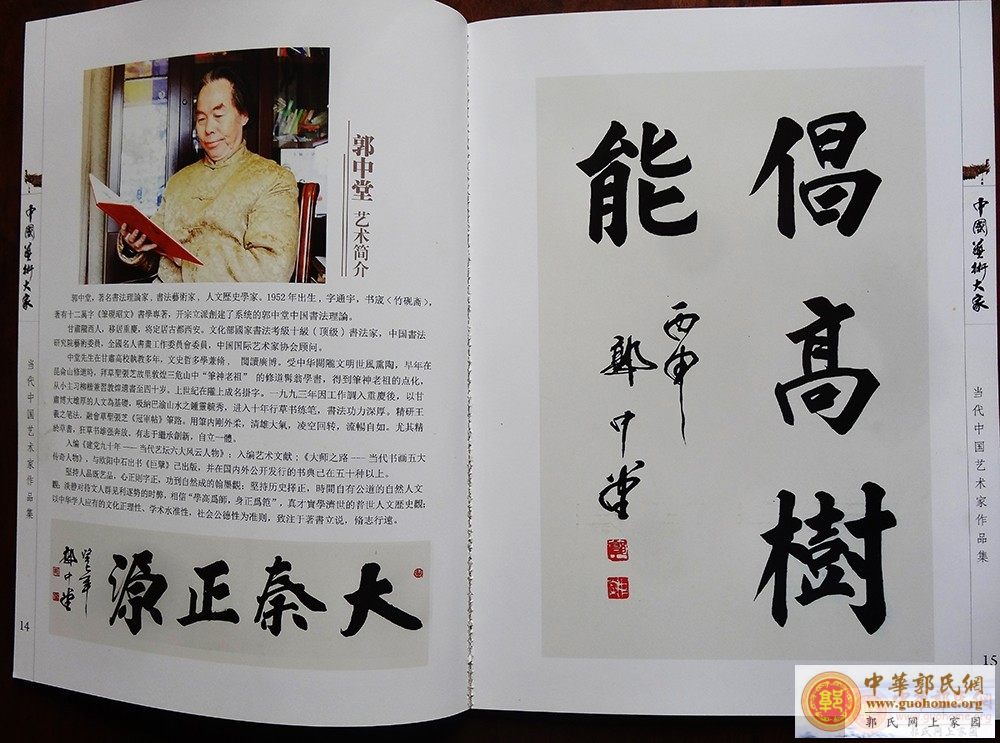 中國藝術大家
当代中国艺术家作品集
郭中堂 艺术简介
郭中堂，著名書法理論家、書法藝術家、人文歷史學家。1952年出生，字通宇，书宬（竹砚斋），
著有十二萬字《筆硯昭文》書學專著，开宗立派創建了系統的郭中堂中国書法理論。
甘肅隴西人，移居重慶，将定居古都西安。文化部國家書法考级十級（顶级）書法家，中国書法
研究院藝術委員，全國名人書畫工作委員會委員，中国国际艺术家协会顾问。
中堂先生在甘肅高校執教多年，文史哲多學兼脩、閲讀廣博。受中华關隴文明世風熏陶，早年在
昆侖山修道時，拜草聖張芝故里敦煌三危山中“筆神老祖”的修道髯翁學書，得到筆神老祖的点化，
从小主习柳楷兼習敦煌遺書至四十岁。上世紀在隴上成名掛字。一九九三年因工作調入重慶後，以甘
肅博大雄厚的人文為基礎，吸納巴渝山水之鍾靈毓秀，进入十年行草书练笔，書法功力深厚。精研王
羲之笔法，融會草聖張芝《冠軍帖》筆路。用筆内剛外柔，清雄大氣，凌空回转，流暢自如。尤其精
於草書，狂草书雄强奔放，有志于繼承創新，自立一體。
入编《建党九十年——当代艺坛六大风云人物》；入编艺术文献；《大师之路——当代书画五大
传奇人物》，与欧阳中石出书《巨擘》己出版，并在国内外公开发行的书典己在五十种以上。
堅持人品既艺品，心正则字正，功到自然成的翰墨觀；堅持历史择正，時間自有公道的自然人文
觀；淡静对待文人群見利逐勢的时弊，相信“學高爲師，身正爲范”，真才實學濟世的普世人文歷史觀；
以中华学人应有的文化正理性、学术水准性，社会公德性为准则，致注于著書立说，脩志行遠。
大秦正源
郭中堂
14
倡高樹
能
丙申
郭中堂
中國藝術大家
当代中国艺术家作品集
15
中華郭氏網
www.guohome.org
郭氏网上家园